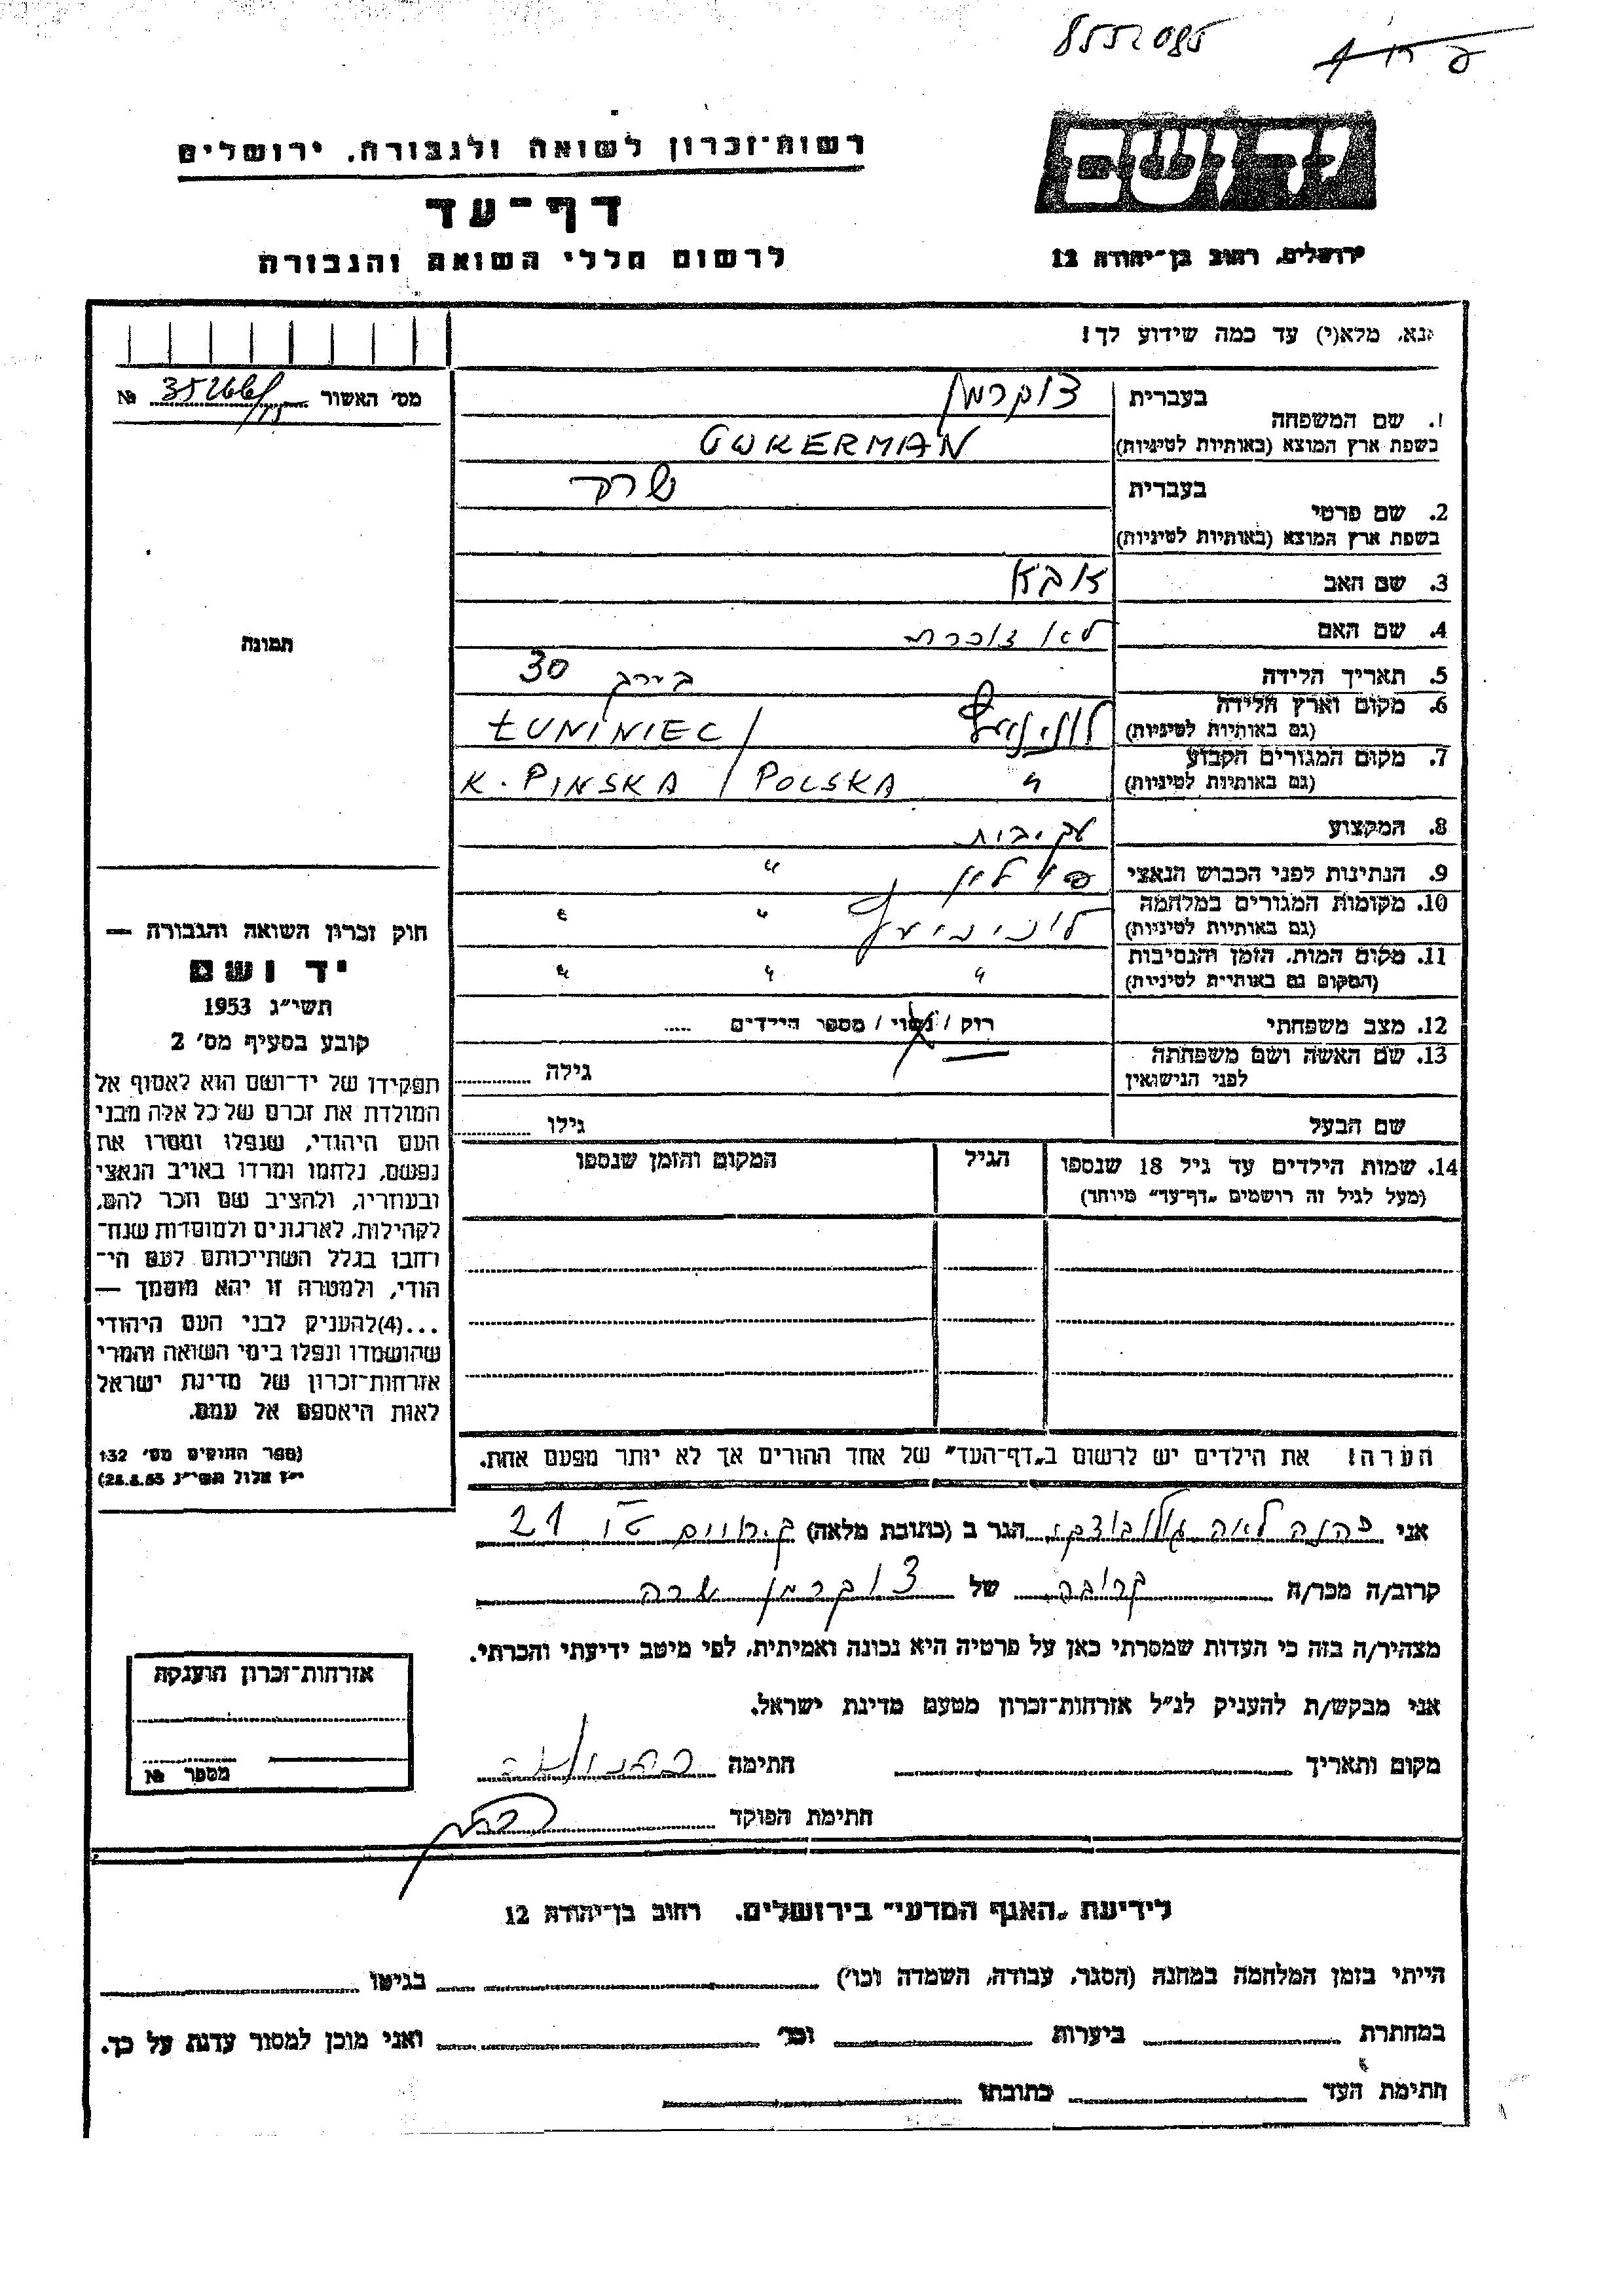 8552085
יד ושם
רשות־זכרון לשואה ולגבורה, ירושלים
דף־עד
לרשום חללי השואה והגבורה
ירושלים, רחוב בן־יהודה 12
נא, מלא(י) עד כמה שידוע לך!
מס׳ האשור № 
1. שם המשפחה
בעברית צוקרמן
בשפת ארץ המוצא (באותיות לטיניות) CUKERMAN
2. שם פרטי
בעברית שרה
בשפת ארץ המוצא (באותיות לטיניות)
3. שם האב
4. שם האם לא זוכרת
5. תאריך הלידה בערך 30
6. מקום וארץ הלידה (גם באותיות לטיניות) לוניניץ ŁUNINIEC /
7. מקום המגורים הקבוע (גם באותיות לטיניות) " K. PINSKA / POLSKA
8. המקצוע
9. הנתינות לפני הכבוש הנאצי פולין "
10. מקומות המגורים במלחמה (גם באותיות לטיניות) לוניניץ " "
11. מקום המות, הזמן והנסיבות (המקום גם באותיות לטיניות) " " "
12. מצב משפחתי רוק / נשוי / מספר הילדים .....
13. שם האשה ושם משפחתה לפני הנישואין גילה
שם הבעל גילו
14. שמות הילדים עד גיל 18 שנספו (מעל לגיל זה רושמים „דף־עד״ מיוחד)
הגיל
המקום והזמן שנספו
הערה! את הילדים יש לרשום ב„דף־העד״ של אחד ההורים אך לא יותר מפעם אחת.
תמונה
חוק זכרון השואה והגבורה —
יד ושם
תשי״ג 1953
קובע בסעיף מס׳ 2
תפקידו של יד־ושם הוא לאסוף אל
המולדת את זכרם של כל אלה מבני
העם היהודי, שנפלו ומסרו את
נפשם, נלחמו ומרדו באויב הנאצי
ובעוזריו, ולהציב שם וזכר להם,
לקהילות, לארגונים ולמוסדות שנח־
רחבו בגלל השתייכותם לעם הי־
הודי, ולמטרה זו יהא מוסמך —
...(4)להעניק לבני העם היהודי
שהושמדו ונפלו בימי השואה והמרי
אזרחות־זכרון של מדינת ישראל
לאות היאספם אל עמם.
(ספר החוקים מס׳ 132
י״ז אלול תשי״ג 28.8.53)
אני לאה הגר ב (כתובת מלאה) 21
קרוב/ה מכר/ה קרובה של צוקרמן שרה
מצהיר/ה בזה כי העדות שמסרתי כאן על פרטיה היא נכונה ואמיתית, לפי מיטב ידיעתי והכרתי.
אני מבקש/ת להעניק לנ״ל אזרחות־זכרון מטעם מדינת ישראל.
מקום ותאריך חתימה
חתימת הפוקד
אזרחות־זכרון הוענקה
מספר №
לידיעת „האגף המדעי״ בירושלים, רחוב בן־יהודה 12
הייתי בזמן המלחמה במחנה (הסגר, עבודה, השמדה וכו׳) בגיטו
במחתרת ביערות וכו׳ ואני מוכן למסור עדות על כך.
חתימת העד כתובתו